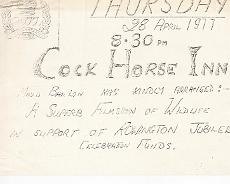 THURSDAY
28 APRIL 1977
8.30 PM
COCK HORSE INN
HAS KINDLY ARRANGED :-
A SUPERB FILMSION OF WILDLIFE
IN SUPPORT OF ROWINGTON JUBILEE
CELEBRATION FUNDS.